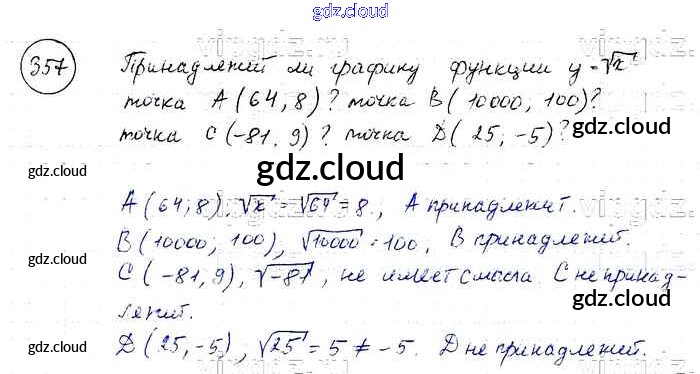 gdz.cloud
357 Принадлежит ли графику функции y = √x
точка A (64, 8)? точка B (10000, 100)?
точка C (-81, 9)? точка D (25, -5)?
gdz.cloud
gdz.cloud
gdz.cloud
A (64; 8), √x = √64 = 8, A принадлежит.
gdz.cloud
B (10000; 100), √10000 = 100, B принадлежит.
gdz.cloud
C (-81, 9), √-81, не имеет смысла. C не принад-
лежит.
gdz.cloud
gdz.cloud
D (25, -5), √25 = 5 ≠ -5. D не принадлежит.
gdz.cloud
gdz.cloud